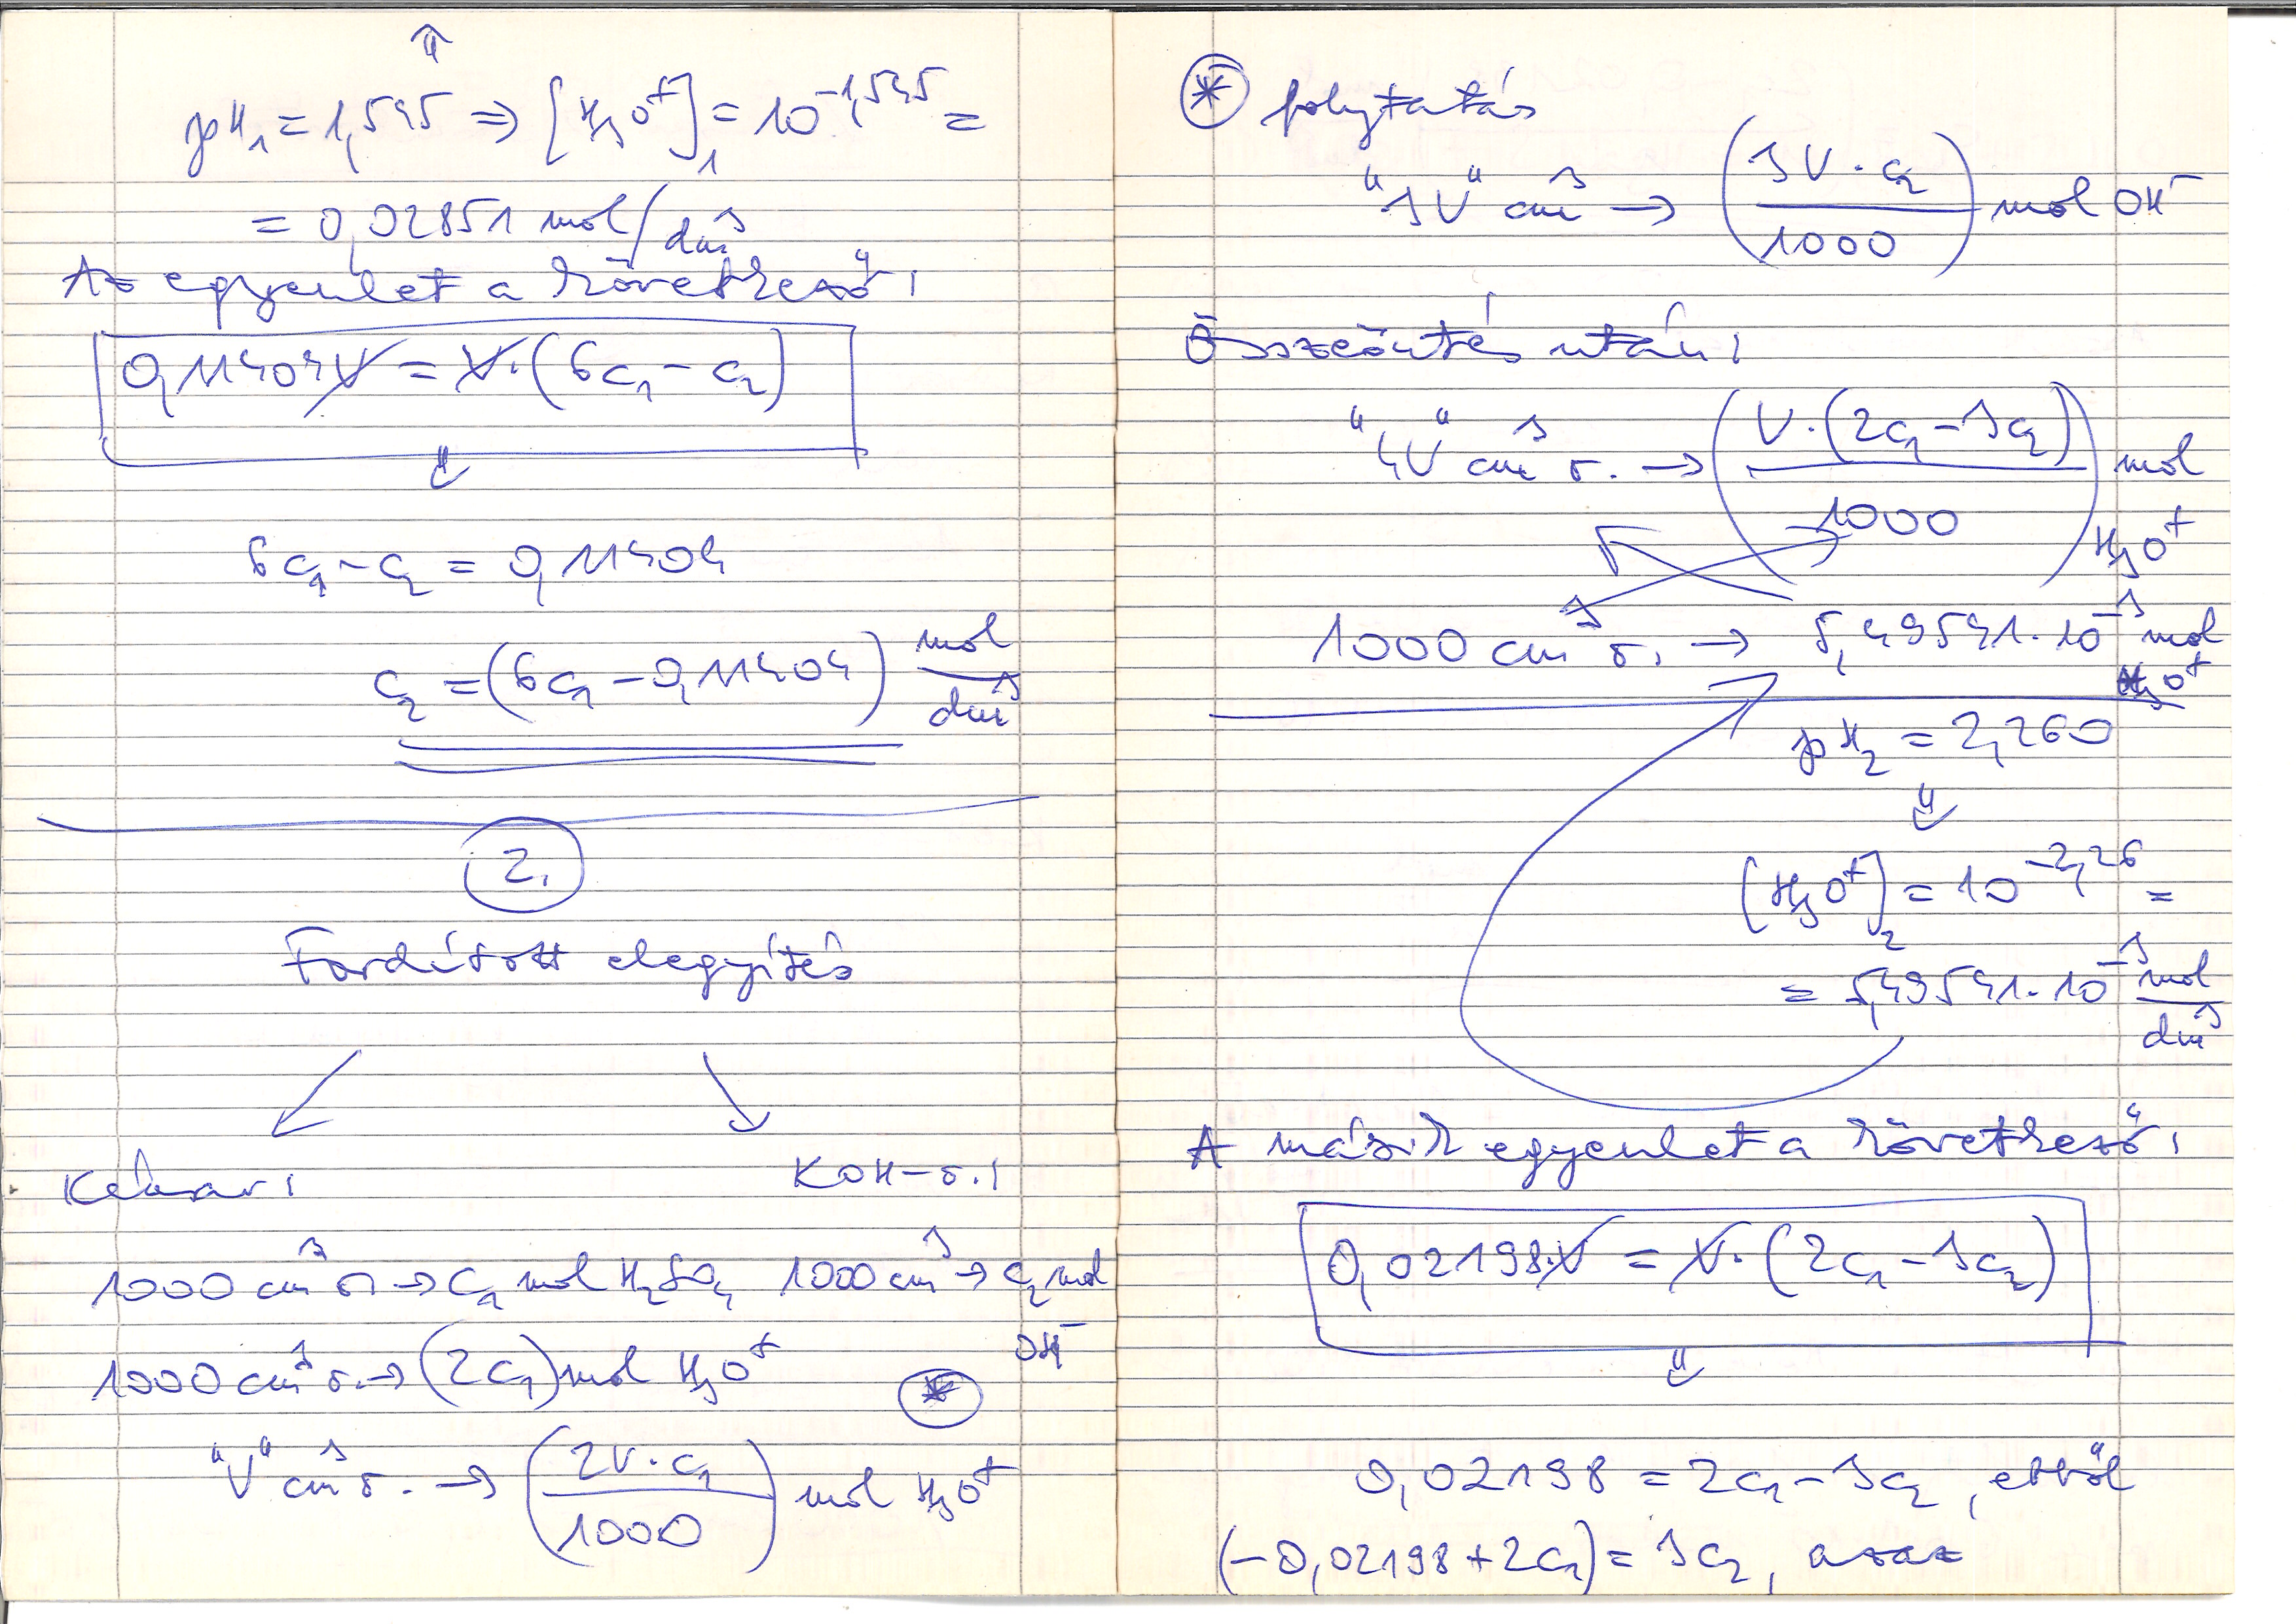 ⇑
pH₁ = 1,545 ⇒ [H₃O⁺]₁ = 10^-1,545 =
= 0,02851 mol/dm³
Az egyenlet a következő:
0,11404V = V·(6c₁ - c₂)
⇓
6c₁ - c₂ = 0,11404
c₂ = (6c₁ - 0,11404) mol/dm³
2.
Fordított elegyítés
↙ ↘
Kénsav:
KOH-o.:
1000 cm³ o. → c₁ mol H₂SO₄
1000 cm³ → c₂ mol OH⁻
1000 cm³ o. → (2c₁) mol H₃O⁺
⊛
"V" cm³ o. → (2V·c₁/1000) mol H₃O⁺
⊛ folytatás
"3V" cm³ → (3V·c₂/1000) mol OH⁻
Összeöntés után:
"4V" cm³ o. → (V·(2c₁ - 3c₂)/1000) mol H₃O⁺
1000 cm³ o. → 5,49541·10⁻³ mol H₃O⁺
pH₂ = 2,260
⇓
[H₃O⁺]₂ = 10^-2,26 =
= 5,49541·10⁻³ mol/dm³
A másik egyenlet a következő:
0,02198·V = V·(2c₁ - 3c₂)
⇓
0,02198 = 2c₁ - 3c₂, ebből
(-0,02198 + 2c₁) = 3c₂, azaz